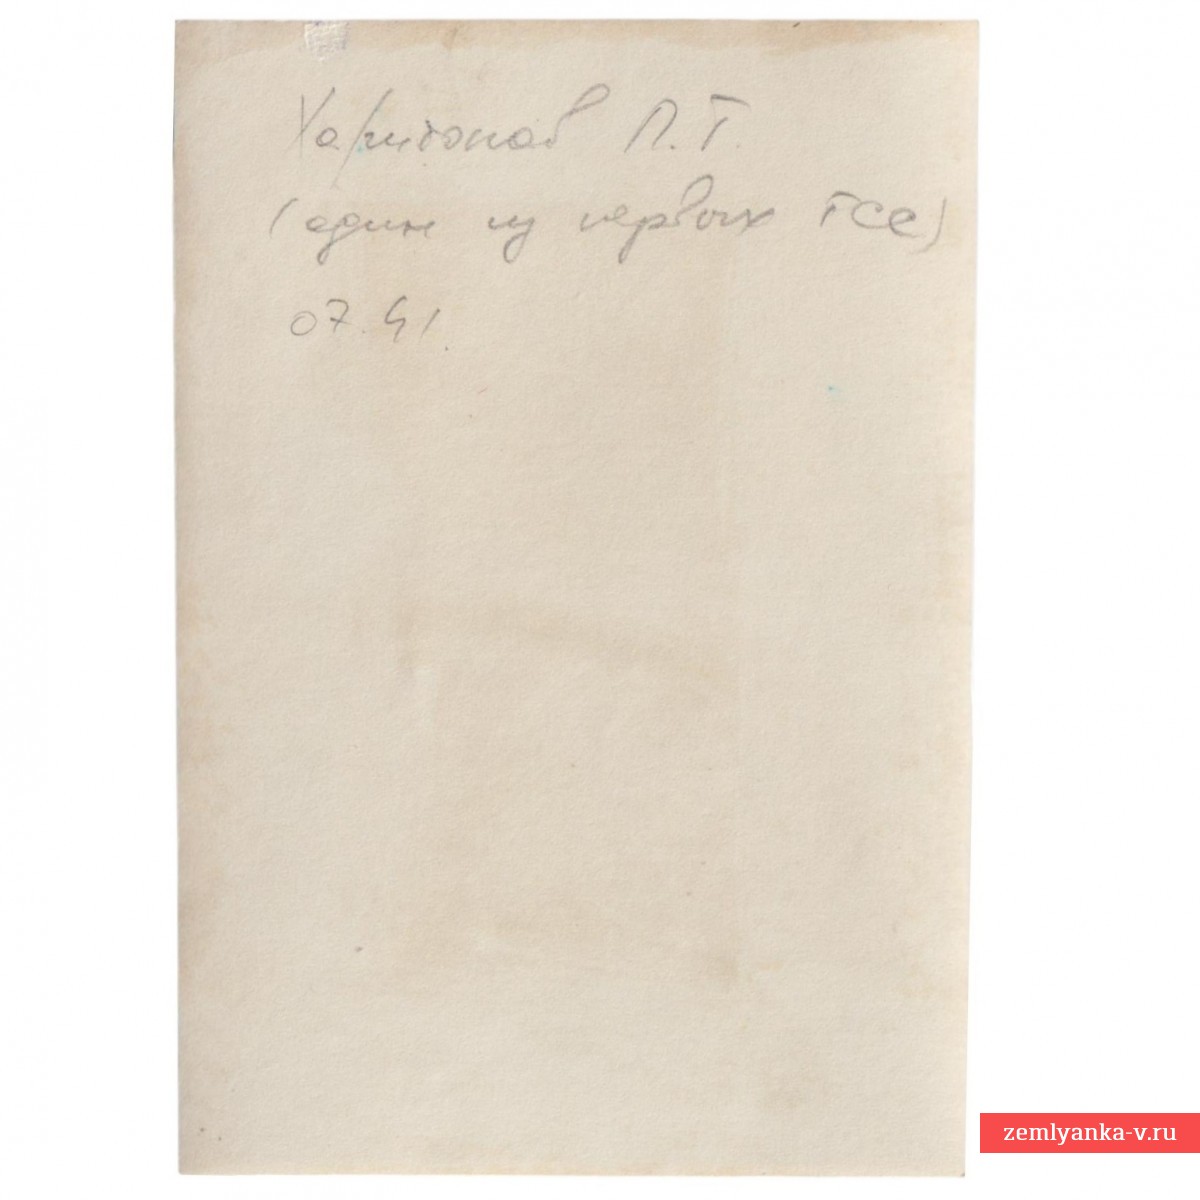 Харитонов П.Т.
(один из первых ГСС)
07.41.
zemlyanka-v.ru